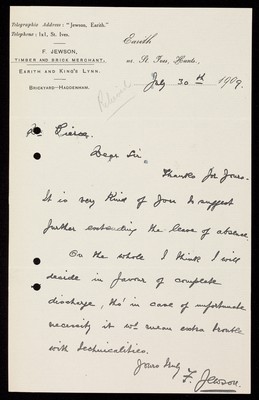 Telegraphic Address: "Jewson, Earith."
Telephone: 1x1, St. Ives.
F. JEWSON,
TIMBER AND BRICK MERCHANT.
EARITH AND KING'S LYNN.
BRICKYARD—HADDENHAM.
Earith
nr. St. Ives, Hunts.,
July 30th 1909.
Dr Pierce.
Dear Sir,
Thanks for yours.
It is very kind of you to suggest
further extending the leave of absence.
On the whole I think I will
decide in favour of complete
discharge, tho' in case of unfortunate
necessity it wd. mean extra trouble
with technicalities.
Yours truly
F. Jewson.